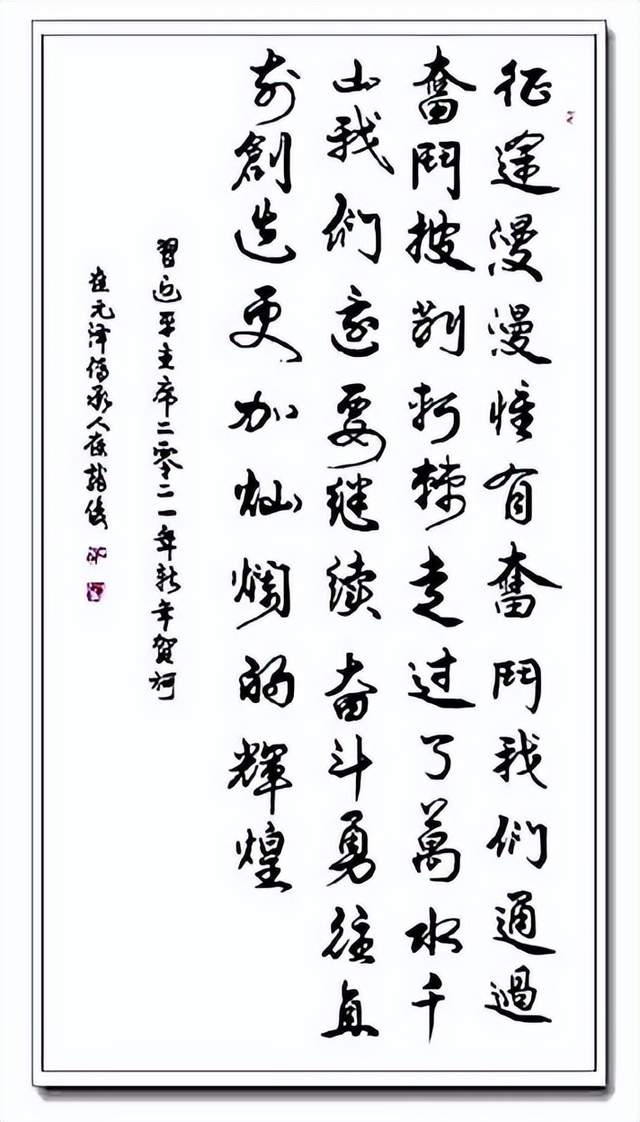 征途漫漫惟有奮鬥我們通過
奮鬥披荆斬棘走过了萬水千
山我們還要继续奋斗勇往直
前創造更加灿爛的輝煌
習近平主席二零二一年新年賀詞
崔元泽傳承人崔